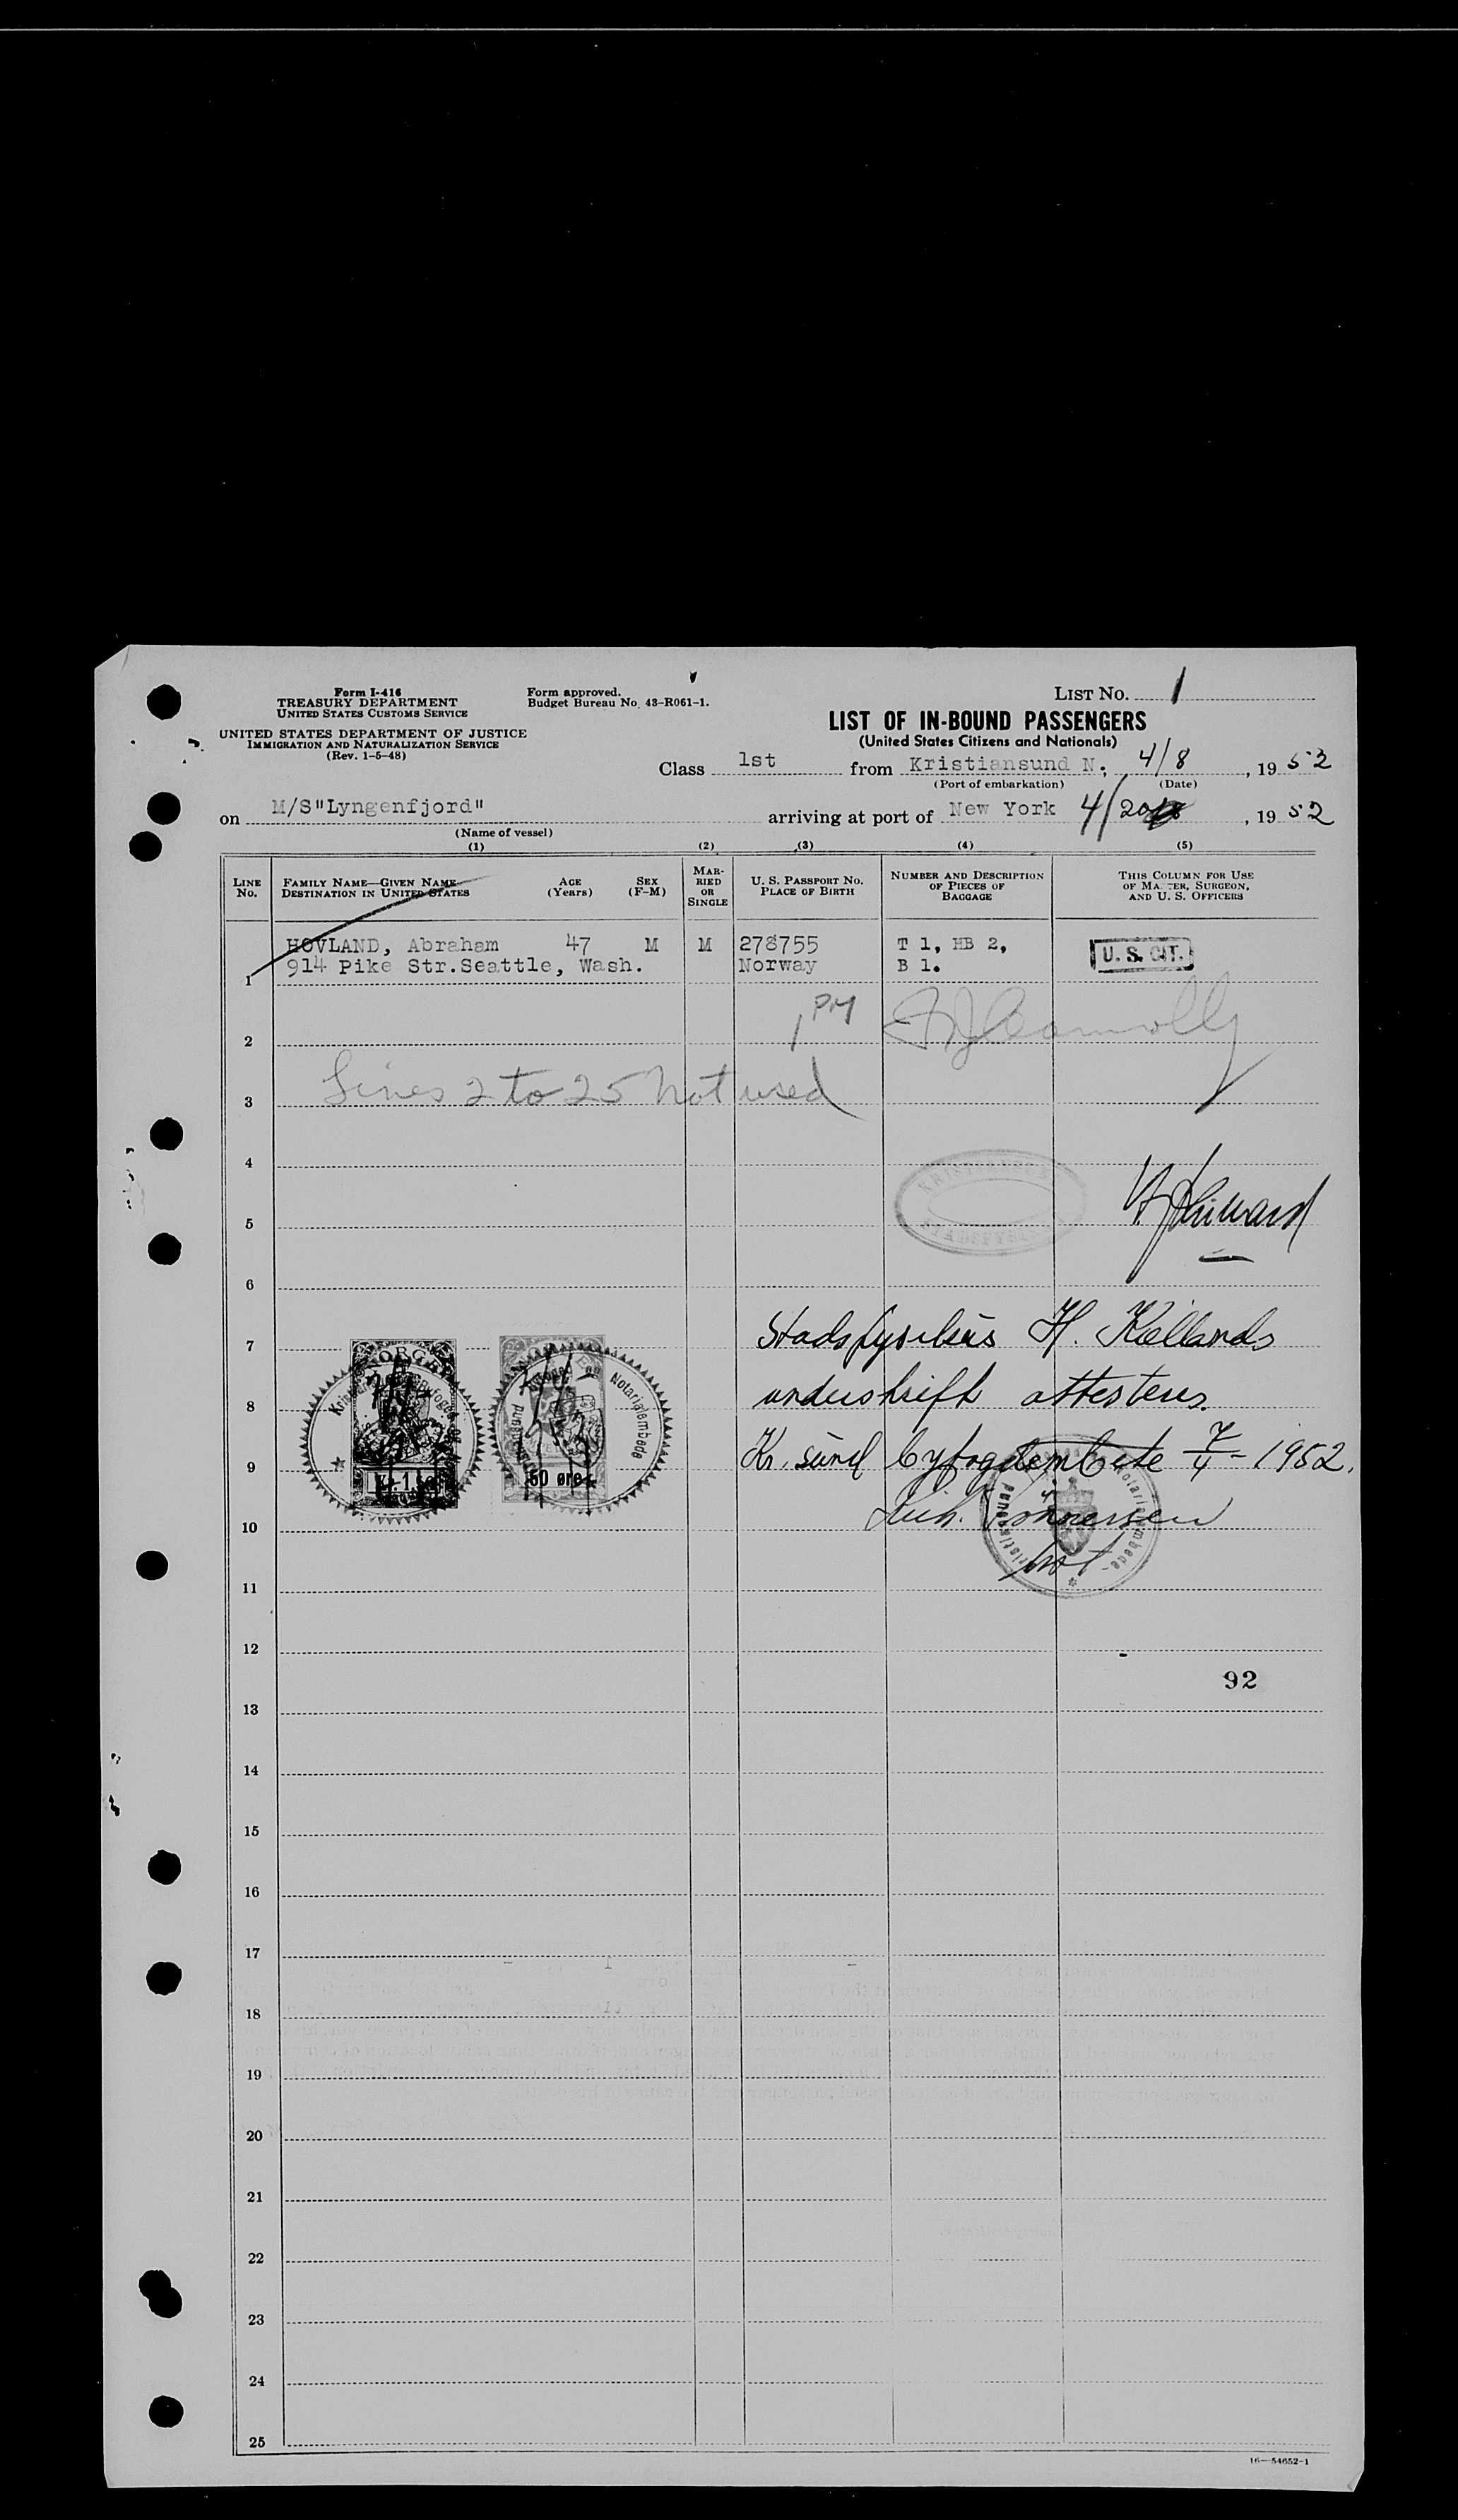 Form I-416
TREASURY DEPARTMENT
UNITED STATES CUSTOMS SERVICE
UNITED STATES DEPARTMENT OF JUSTICE
IMMIGRATION AND NATURALIZATION SERVICE
(Rev. 1-5-48)
Form approved.
Budget Bureau No. 43-R061-1.
LIST NO. 1
LIST OF IN-BOUND PASSENGERS
(United States Citizens and Nationals)
Class 1st from Kristiansund N; 4/8, 1952
(Port of embarkation) (Date)
on M/S"Lyngenfjord" arriving at port of New York 4/20, 1952
(Name of vessel)
(1) (2) (3) (4) (5)
LINE NO. FAMILY NAME—GIVEN NAME DESTINATION IN UNITED STATES AGE (Years) SEX (F-M) MARRIED OR SINGLE U. S. PASSPORT NO. PLACE OF BIRTH NUMBER AND DESCRIPTION OF PIECES OF BAGGAGE THIS COLUMN FOR USE OF MASTER, SURGEON, AND U. S. OFFICERS
HOVLAND, Abraham 47 M M 278755 T 1, HB 2, U. S. CIT.
1 914 Pike Str.Seattle, Wash. Norway B 1.
2 1 PM
3 Lines 2 to 25 not used
4
5
6
7 NORGE Stadsfysikus H. Kiellands
8 underskrift attesteres.
9 Kr. sund byfogdembete 7/4-1952.
Kr.1 50 øre
10
11
12
92
13
14
15
16
17
18
19
20
21
22
23
24
25
16—54652-1